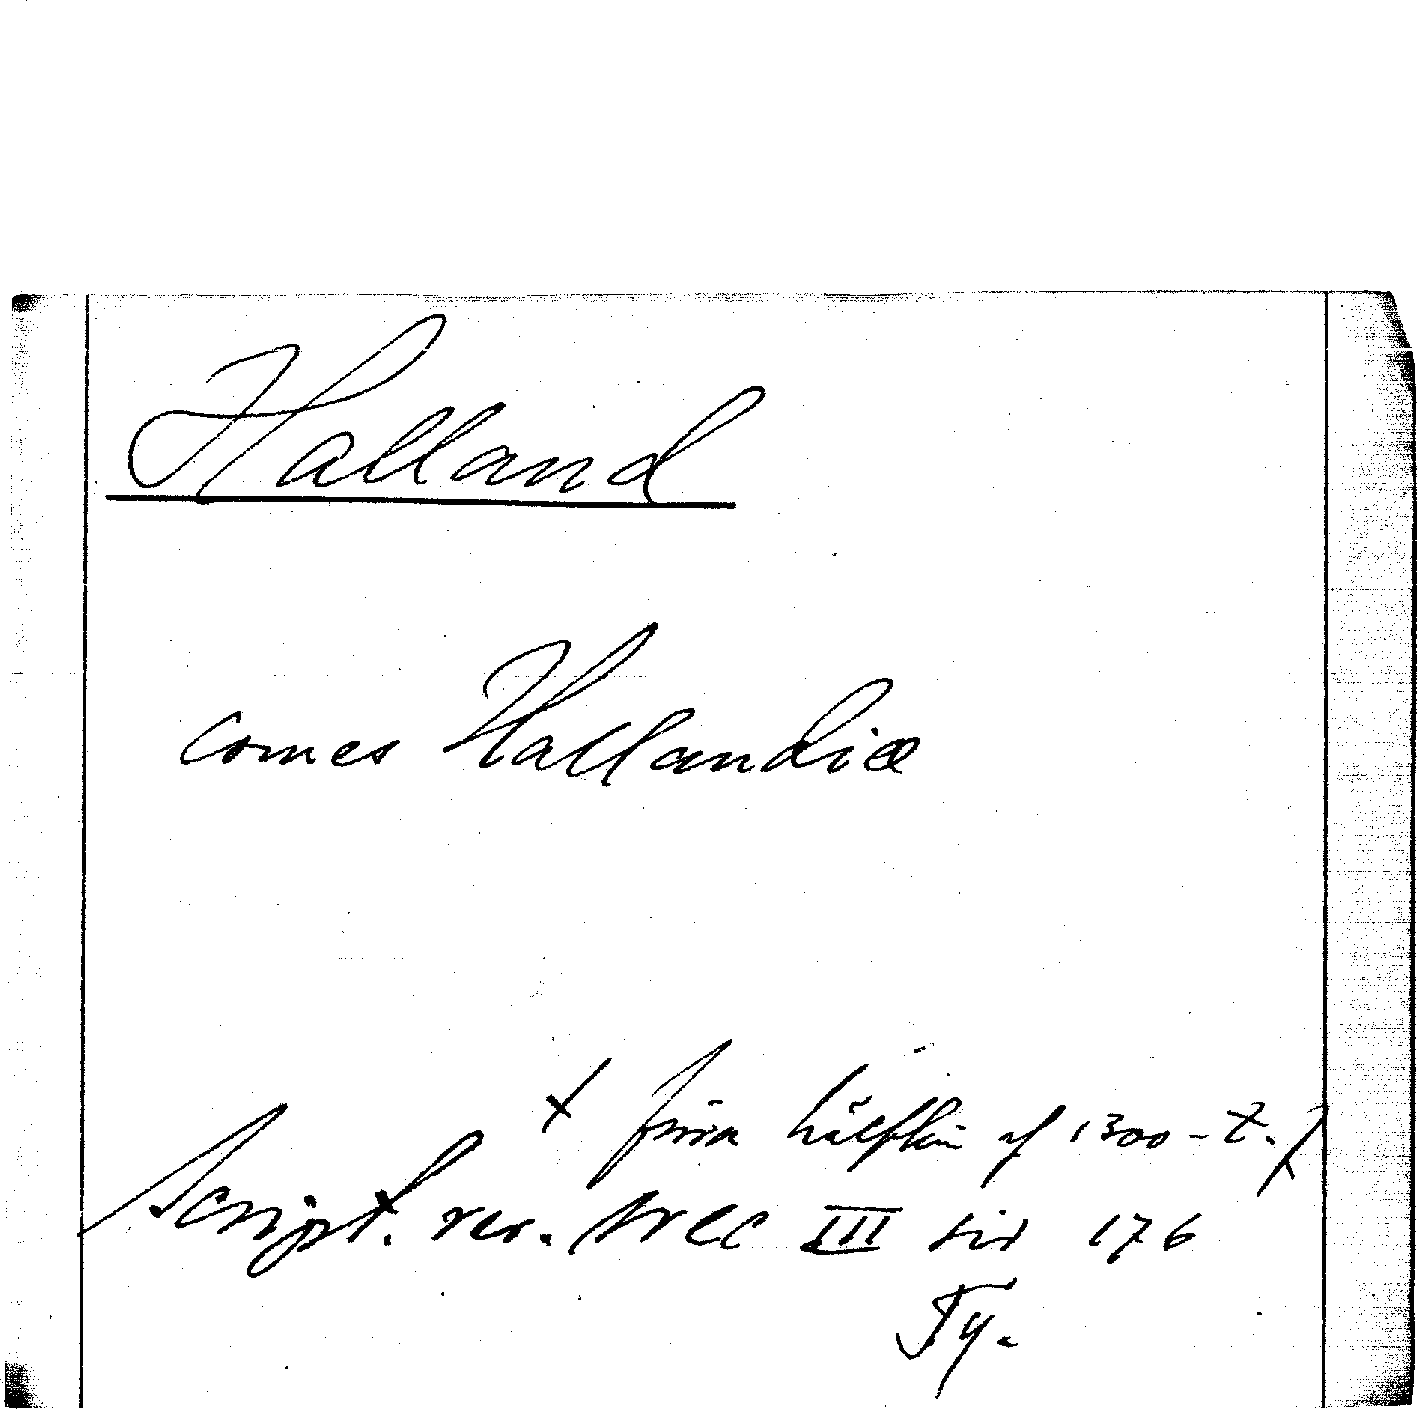 Halland
comes Hallandiæ
x förra hälften af 1300-t.
Script. rer. svec III sid 176
Ty.